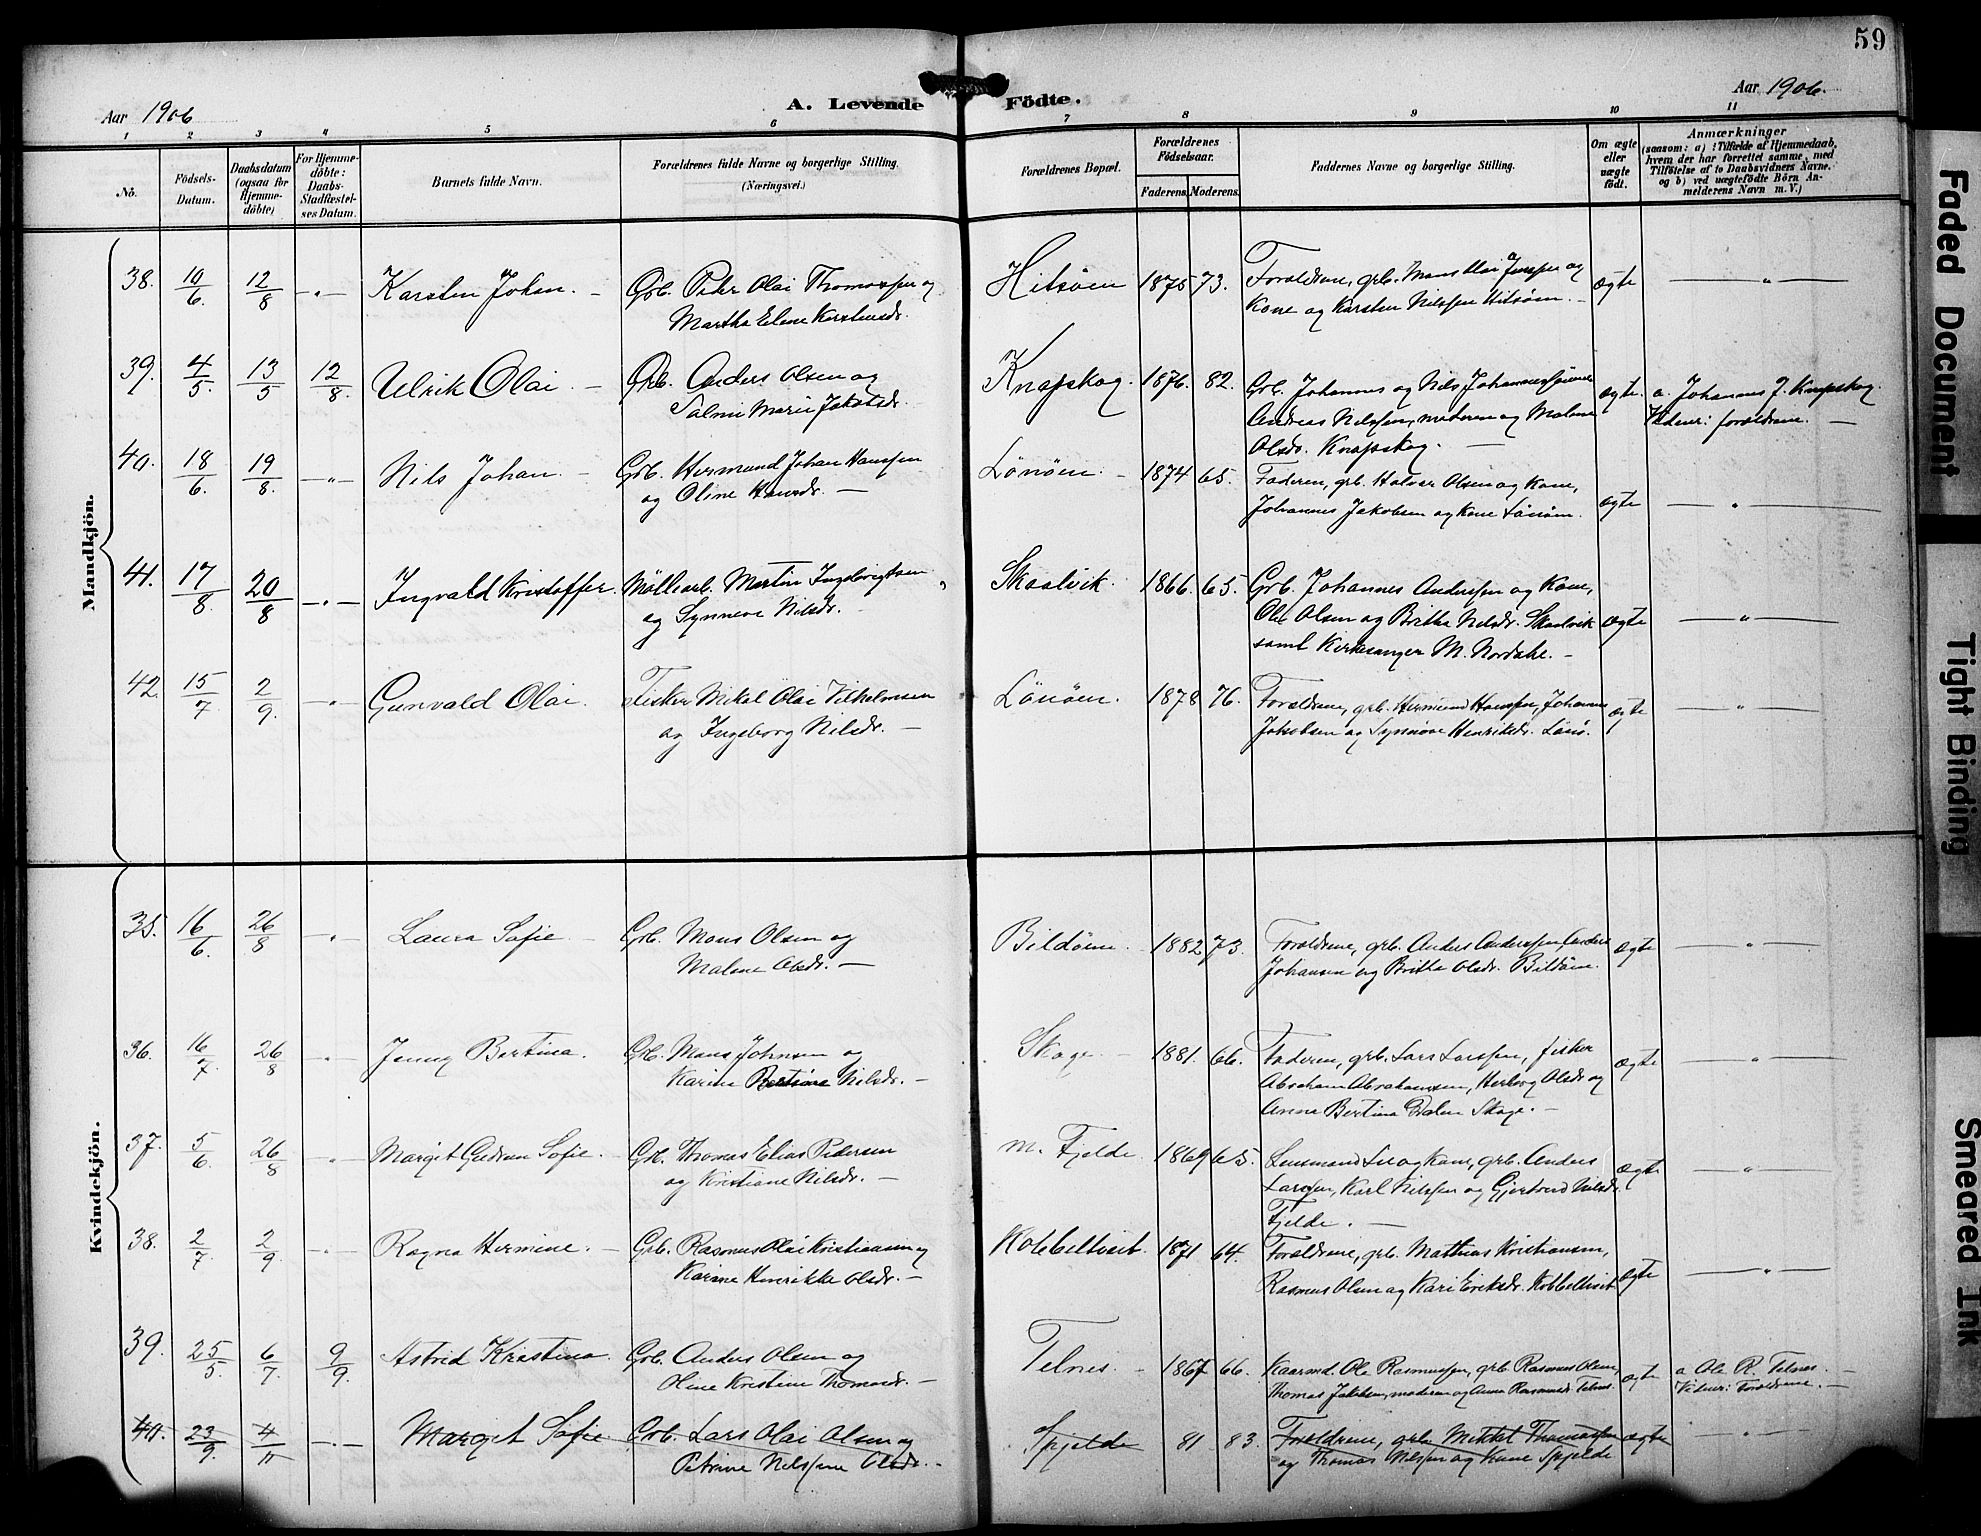 59
Aar 1906
A. Levende Födte.
Aar 1906.
1 2 3 4 5 6 7 8 9 10 11
No.
Födsels-
Datum.
Daabsdatum
(ogsaa for
Hjemme-
döbte)
For Hjemme-
döbte:
Daabs-
Stadfæstel-
ses Datum.
Barnets fulde Navn.
Forældrenes fulde Navne og borgerlige Stilling.
(Næringsvei.)
Forældrenes Bopæl.
Forældrenes
Födselsaar.
Faderens. Moderens.
Faddernes Navne og borgerlige Stilling.
Om ægte
eller
uægte
födt.
Anmærkninger
(saasom: a) i Tilfælde af Hjemmedaab,
hvem der har forrettet samme, med
Tilföielse af to Daabsvidners Navne.
og b) ved uægtefödte Börn An-
melderens Navn m. V.)
Mandkjön.
38. 10/6 12/8 -"- Karsten Johan. - Grb. Peder Olai Thomassen og
Martha Elene Karstensdr.
Hitsöen 1875 73. Forældrene, grb. Mons Olai Jenssen og
Kone og Karsten Nilssen Hitsöen. - ægte -"-
39. 4/5 13/5 12/8 Ulrik Olai - Grb. Anders Olsen og
Salmie Marie Jakobsdr.
Knapskog. 1876. 82. Grb. Johannes og Nils Johannessönner
Andreas Nilssen, moderen og Malene
Olsdr. Knapskog. - ægte. a. Johannes J. Knapskog.
Vidner: forældrene. -
40. 18/6. 19/8. -"- Nils Johan. - Grb. Hermund Johan Hanssen
og Oline Hansdr. -
Lönöen. - 1874 65. Faderen, grb. Halvor Olsen og Kone,
Johannes Jakobsen og Kone Lönöen. ægte -"-
41. 17/8. 20/8 -"- Ingvald Kristoffer. Möllearb. Martin Ingebrigtsen
og Synneve Nilsdr. -
Skaalvik. 1866. 65. Grb. Johannes Anderssen og Kone,
Ole Olsen og Britha Nilsdr. Skaalvik
samt Kirkesanger M. Nordahl. - ægte -"-
42. 15/7 2/9. -"- Gunvald Olai. Fisker Mikal Olai Vilhelmsen
og Ingeborg Nilsdr. -
Lönöen. 1878 76. Forældrene, grb. Hermund Hanssen, Johannes
Jakobsen og Synnöve Henriksdr. Lönö. ægte -"-
Kvindekjön.
35. 16/6. 26/8 -"- Laura Sofie. - Grb. Mons Olsen og
Malene Olsdr. -
Bildöen. 1882 73. Forældrene, grb. Anders Anderssen, Anders
Johansen og Britha Olsdr. Bildöen. ægte -"-
36. 16/7. 26/8 -"- Jenny Bertina. Grb. Mons Johnsen og
Karine Bertine Nilsdr. -
Skage. 1881. 66. Faderen, grb. Lars Larssen, fisker
Abraham Abrahamsen, Herborg Olsdr og
Anna Bertina Skage. - ægte -"-
37. 5/6. 26/8 -"- Margit Gudrun Sofie. Grb. Thomas Elias Pedersen
og Kristiane Nilsdr. -
M. Fjelde. 1869 65. Lensmand Lie og Kone, grb. Anders
Larssen, Karl Nilssen og Gjertrud Nilsdr.
Fjelde. - ægte -"-
38. 2/7. 2/9. -"- Ragna Hermine. - Grb. Rasmus Olai Kristiansen og
Karine Henrikke Olsdr. -
Kobbeltveit. 1871 64. Forældrene, grb. Mathias Kristiansen,
Rasmus Olsen og Kari Eriksdr. Kobbeltveit. ægte -"-
39. 25/5. 6/7. 9/9. Astrid Kristina. Grb. Anders Olsen og
Oline Kristine Thomasdr. -
Telnes. - 1867 66. Kaarmd. Ole Rasmussen, grb. Rasmus Olsen,
Thomas Jakobsen, moderen og Anna Rasmusdr. Telnes. ægte a Ole R. Telnes. -
Vidner: Forældrene. -
40. 23/9. 4/11 -"- Margit Sofie Grb. Lars Olai Olsen og
Petrine Nilssine Olsdr. -
Spjelde 81. 83. Forældrene, grb. Mikkel Thomassen
og Thomas Nilssen og Kone Spjelde ægte -"-
Faded Document
Tight Binding
Smeared Ink